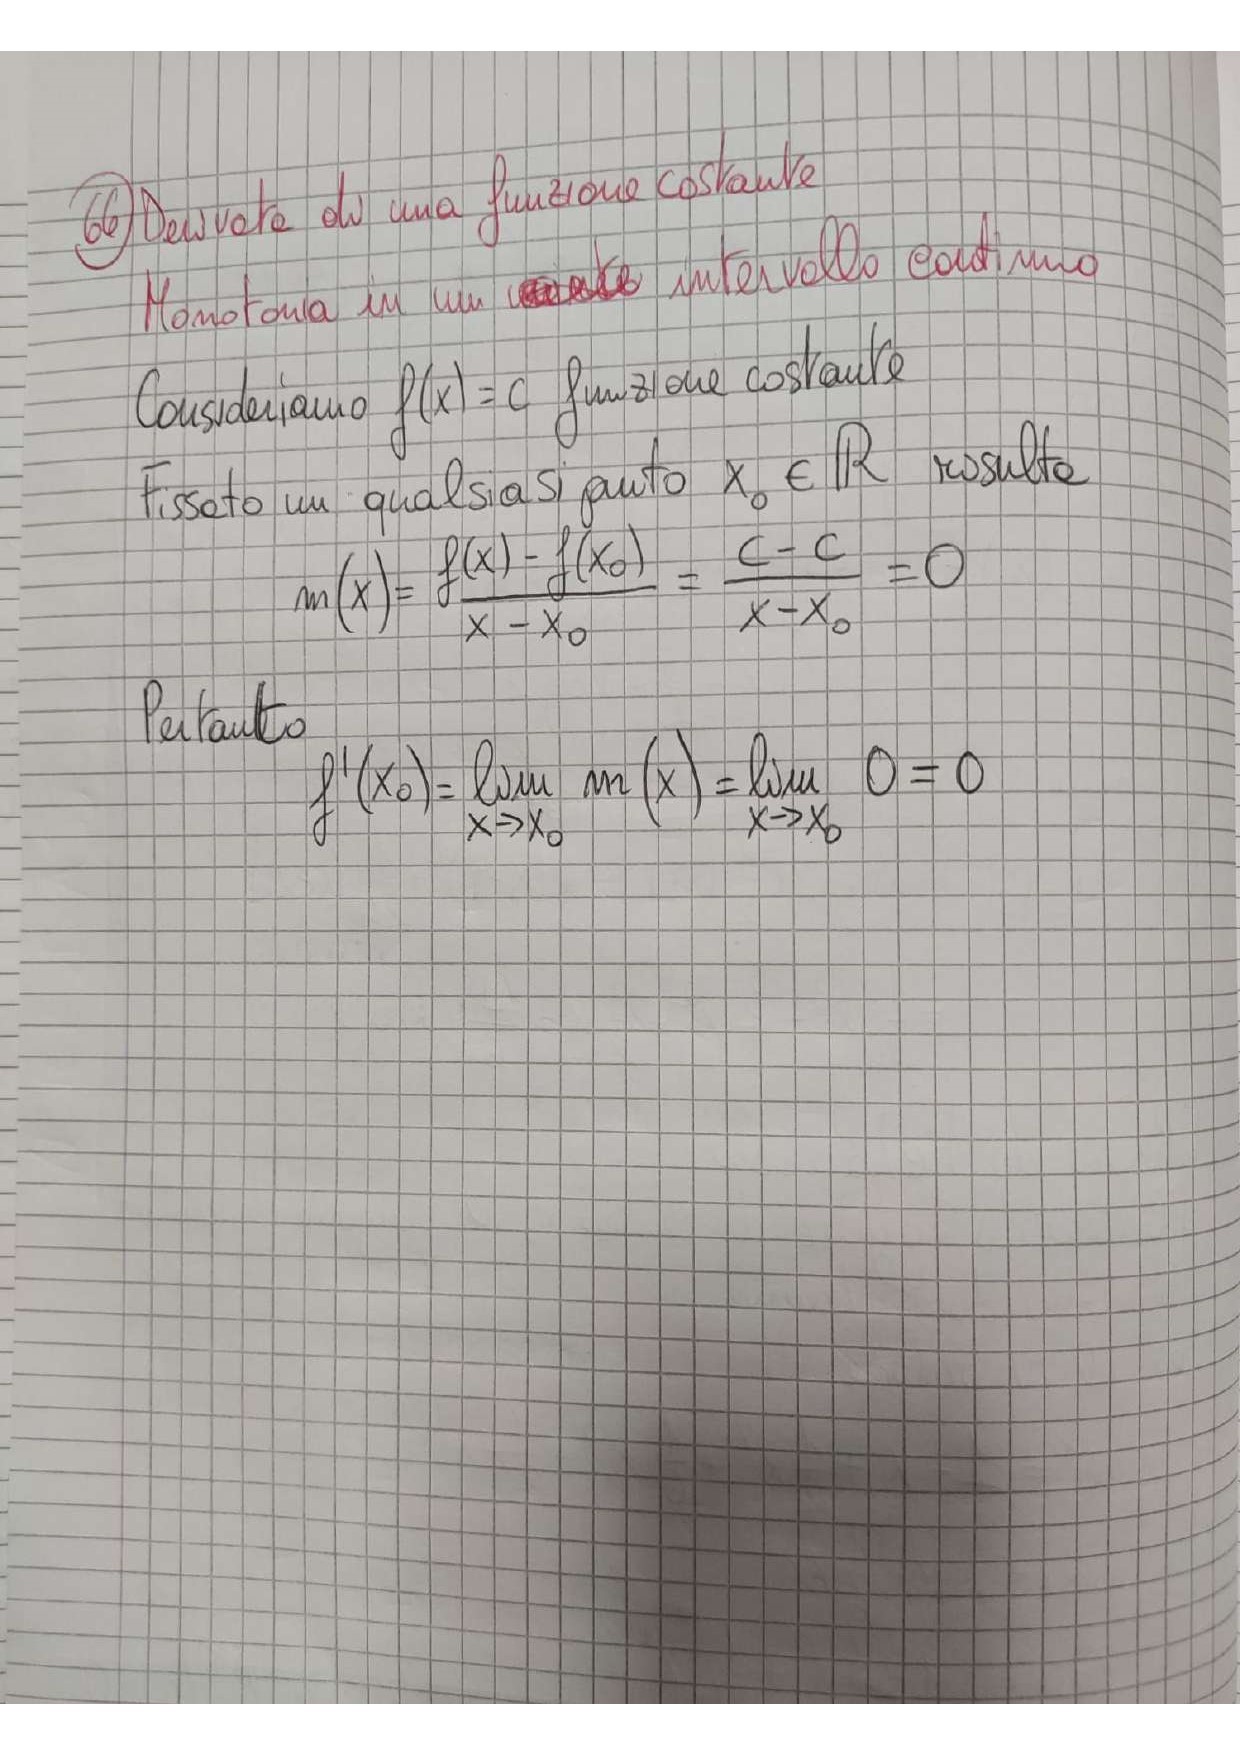 66) Derivata di una funzione costante
Monotonia in un intervallo continuo
Consideriamo f(x) = c funzione costante
Fissato un qualsiasi punto x₀ ∈ ℝ risulta
m(x) = (f(x) - f(x₀))/(x - x₀) = (c - c)/(x - x₀) = 0
Pertanto
f'(x₀) = lim x→x₀ m(x) = lim x→x₀ 0 = 0